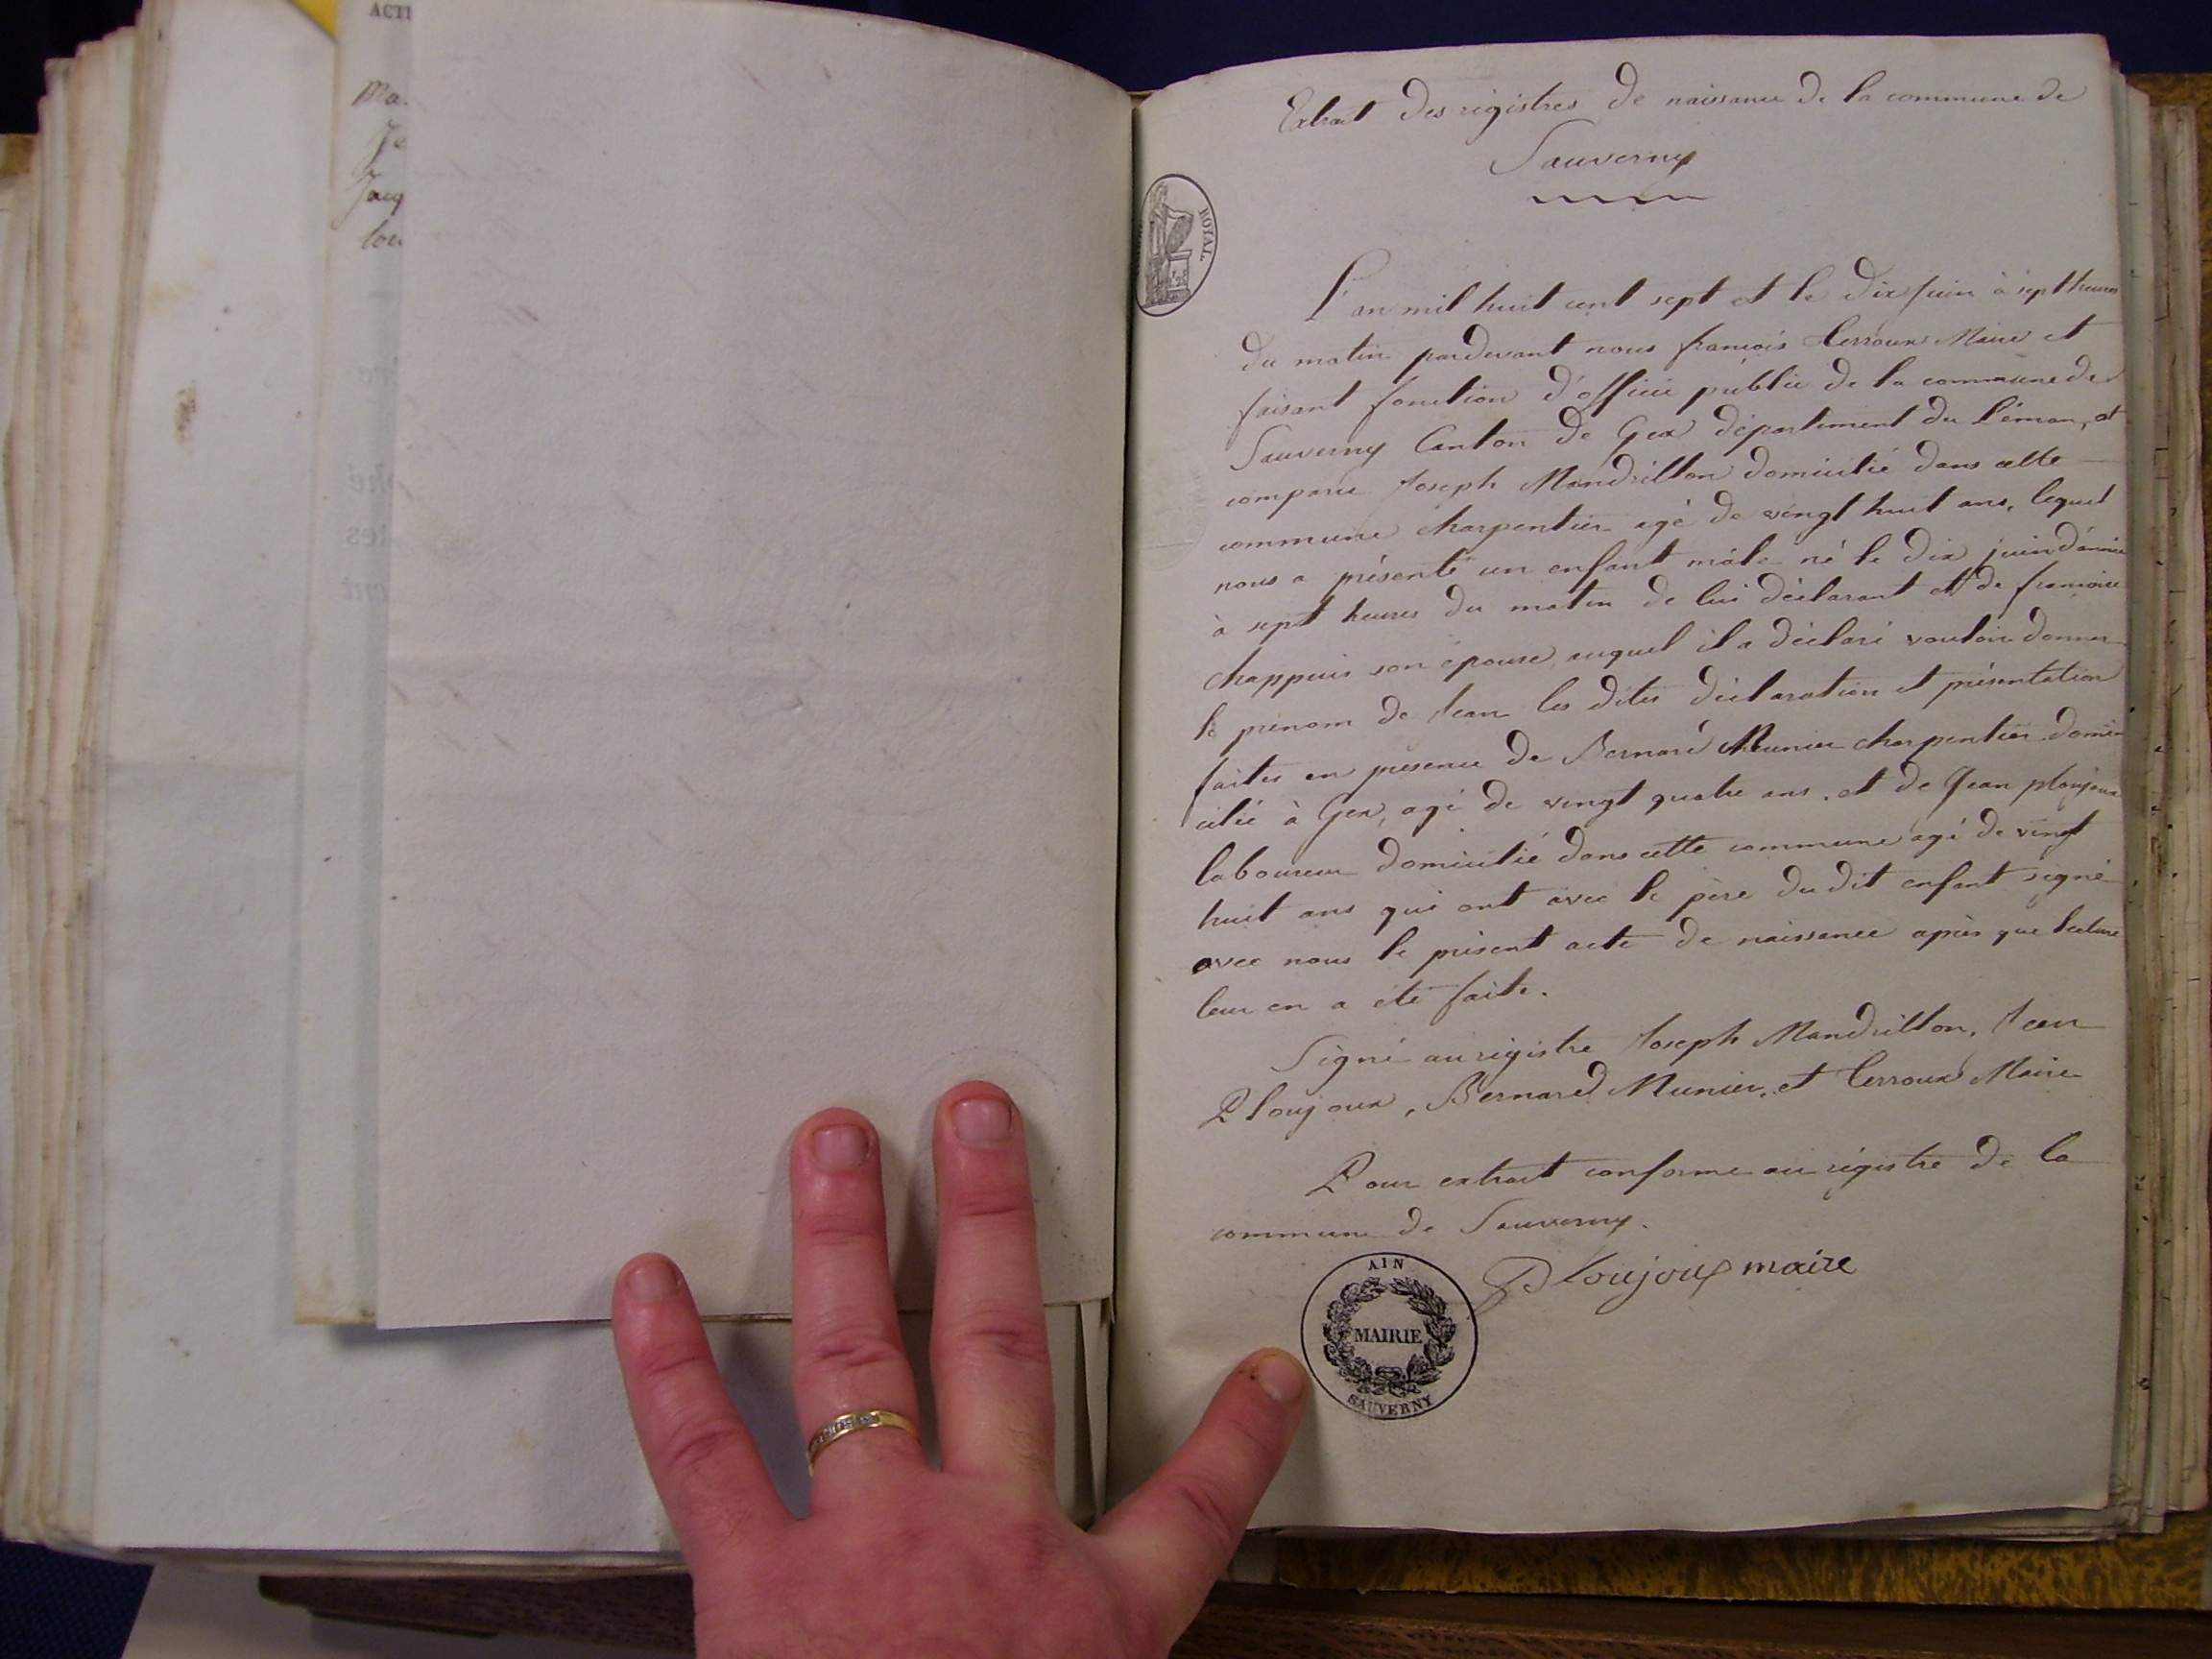 ACTI
Ma.
Je
Jacq
lou
Extrait des régistres de naissance de la commune de
Sauverny
ROYAL
L'an mil huit cent sept et le dix juin à sept heures
du matin pardevant nous françois Terroux Maire et
faisant fonction d'officier public de la commune de
Sauverny Canton de Gex département du Léman, est
comparu Joseph Mandrillon domicilié dans cette
commune charpentier agé de vingt huit ans, lequel
nous a présenté un enfant mâle né le dix juin dernier
à sept heures du matin de lui déclarant et de françoise
chappuis son épouse, auquel il a déclaré vouloir donner
le prénom de Jean les dites déclaration et présentation
faites en présence de Bernard Munier charpentier domi
cilié à Gex, agé de vingt quatre ans, et de Jean ploujoux
laboureur domicilié dans cette commune agé de vingt
huit ans qui ont avec le père du dit enfant signé
avec nous le présent acte de naissance après que lecture
leur en a été faite.
Signé au régistre Joseph Mandrillon, Jean
Ploujoux, Bernard Munier, et Terroux Maire
Pour extrait conforme au régistre de la
commune de Sauverny.
Ploujoux maire
AIN
MAIRIE
SAUVERNY